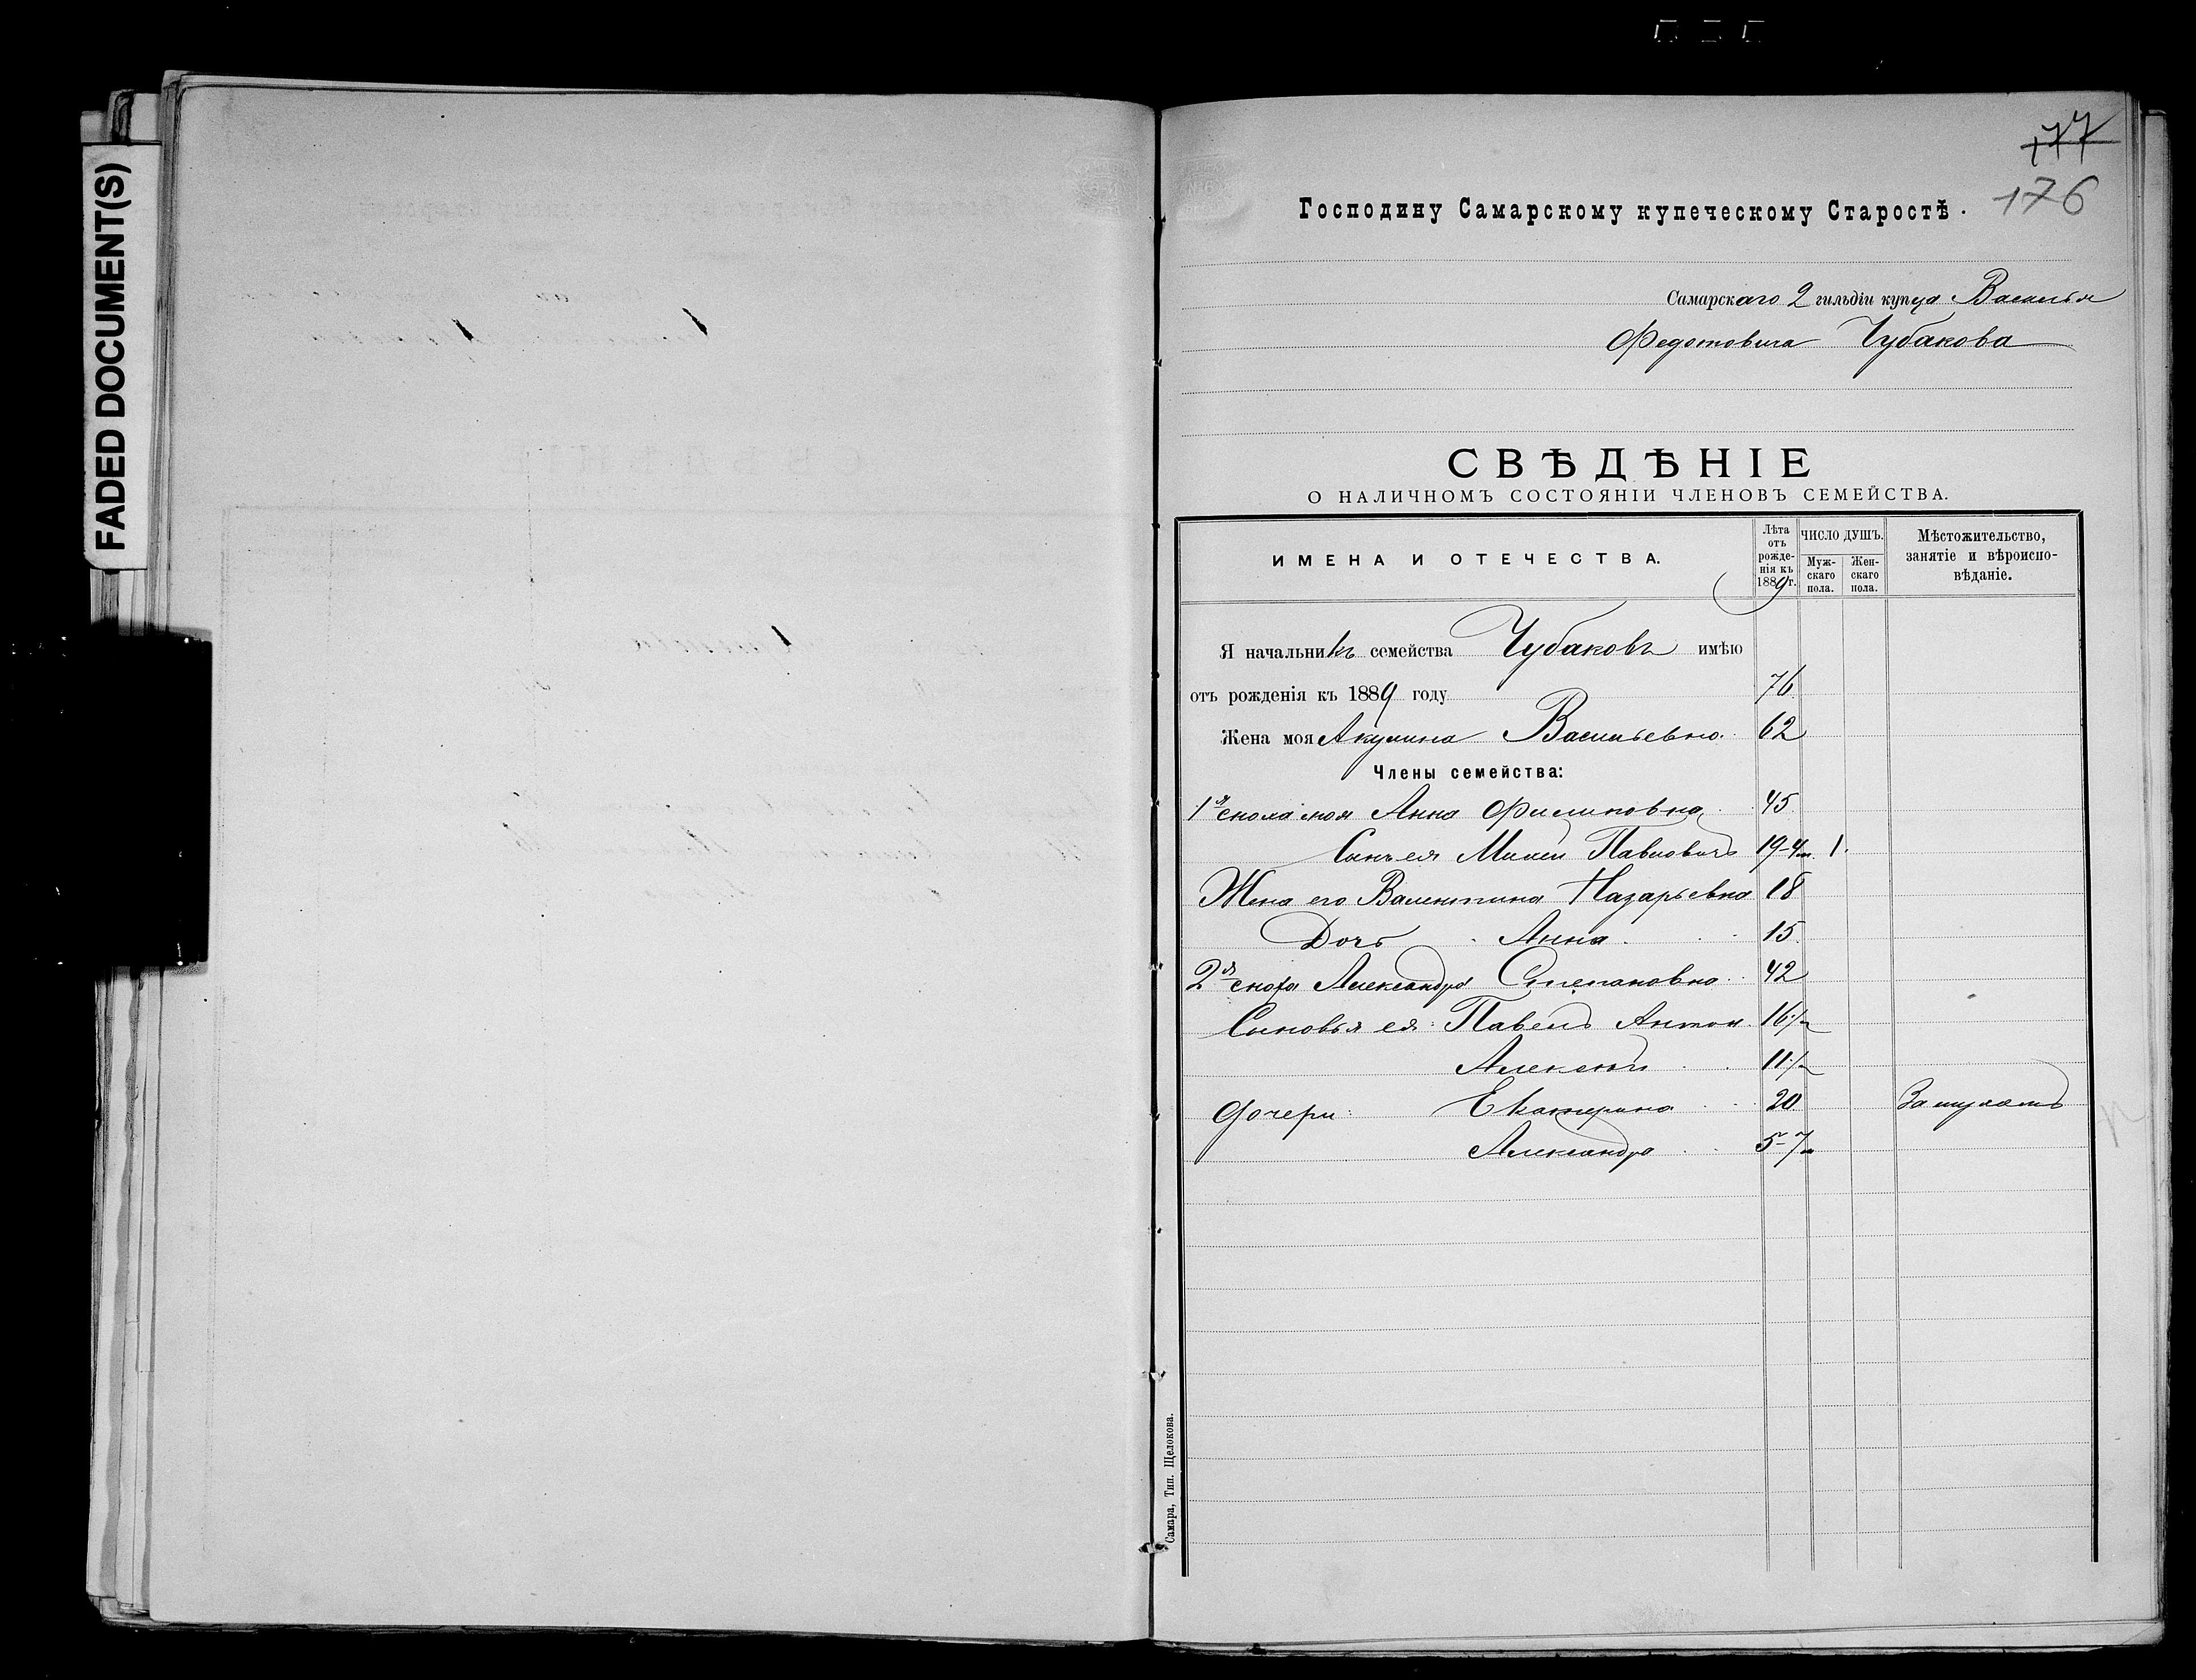 FADED DOCUMENT(S)
177
176
Господину Самарскому купеческому Старостѣ.
Самарскаго 2 гильдіи купца Василья
Федотовича Чубакова
СВѢДѢНІЕ
О НАЛИЧНОМЪ СОСТОЯНІИ ЧЛЕНОВЪ СЕМЕЙСТВА.
ИМЕНА И ОТЕЧЕСТВА. Лѣта отъ рожденія къ 1889 г. ЧИСЛО ДУШЪ. Мужскаго пола. Женскаго пола. Мѣстожительство, занятіе и вѣроисповѣданіе.
Я начальникъ семейства Чубаковъ имѣю
отъ рожденія къ 1889 году 76
Жена моя Акулина Васильевна 62
Члены семейства:
1я сноха моя Анна Филиповна 45
Сынъ ея Павловичъ 19-4м. 1.
Жена его Валентина Назарьевна 18
Дочь Анна 15
2я сноха Александра Степановна 42
Сыновья ея: Павелъ Антон 16½
Алексей 11½
Дочери: Екатерина 20 Замужемъ
Александра 5-7м
Самара, Тип. Щелокова.